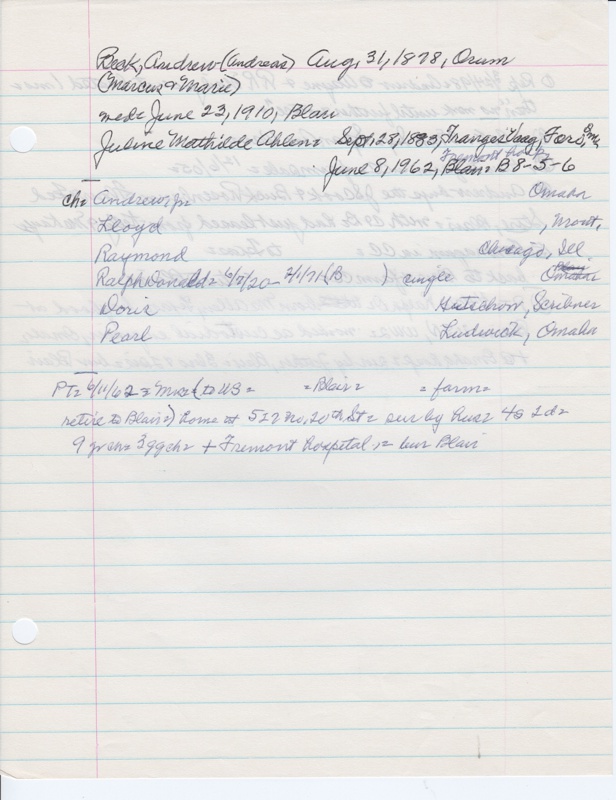 Beck, Andrew (Andreas) Aug, 31, 1878, Orum
(Marcus & Marie)
med= June 23, 1910, Blair
Juline Mathilde Ahlen= Sept, 28, 1883,
Fremont Hosp
June 8, 1962, Blair B 8-5-6
ch= Andrew Jr Omaha
Lloyd , Mont.
Raymond Chicago, Ill.
Ralph Donald= 6/7/20- 2/1/71 (B ) single Omaha
Doris Gutschow, Scribner
Pearl Ludwick, Omaha
PT= 6/11/62 = Mrs= (to US= =Blair= = farm=
retire to Blair=) home at 512 No, 20th St= sur by hus= 4s 2d=
9 gr ch= 3 ggch= + Fremont hospital = bur Blair